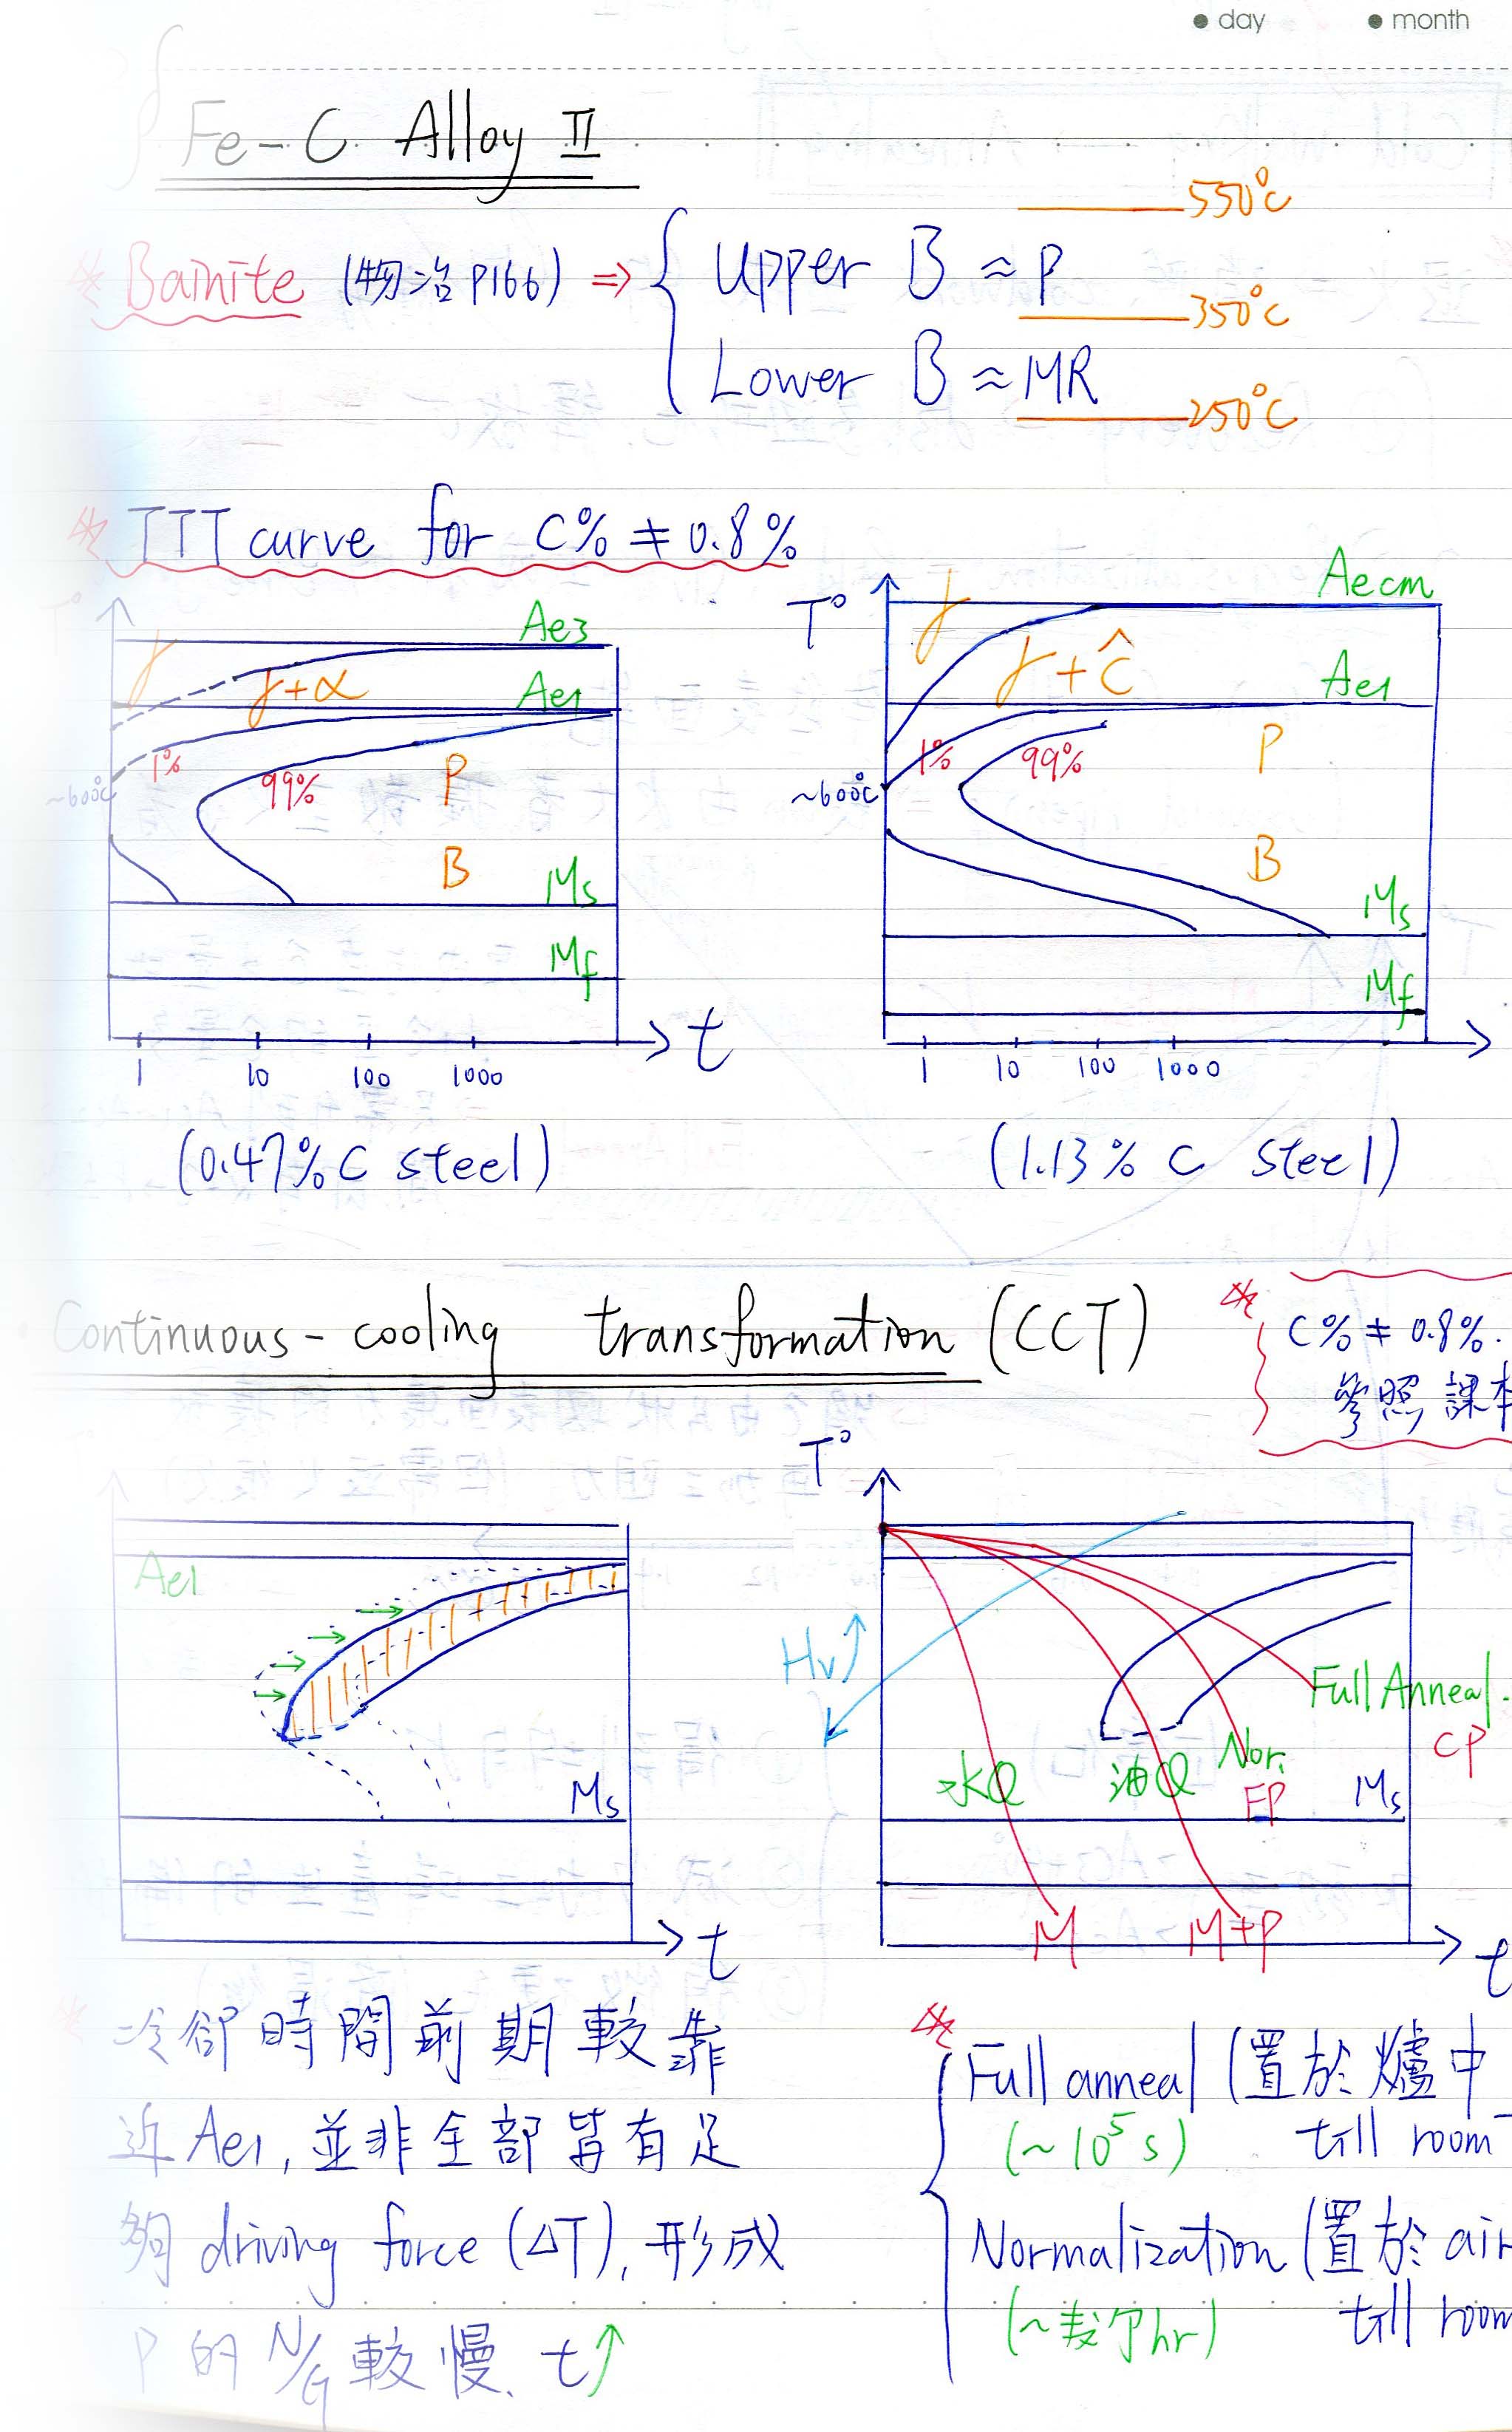 • day • month
Fe-C Alloy II
550°C
Bainite (物冶 P166) ⇒ { Upper B ≈ P
350°C
Lower B ≈ MR
250°C
TTT curve for C% ≠ 0.8%
Ae3
γ
γ+α
Ae1
1%
99%
P
~600°C
B
Ms
Mf
t
1 10 100 1000
(0.47% C steel)
T°
Aecm
γ
γ+Ĉ
Ae1
1%
99%
P
~600°C
B
Ms
Mf
1 10 100 1000
(1.13% C steel)
Continuous-cooling transformation (CCT)
C% ≠ 0.8%.
參照課本
Ae1
Ms
t
T°
Hv↑
Full Anneal.
CP
水Q 油Q Nor.
FP
Ms
M M+P
t
冷卻時間前期較靠
近Ae1, 並非全部皆有足
夠 driving force (ΔT), 形成
P 的 N/G 較慢. t↑
Full anneal (置於爐中
(~10⁵ s) till room
Normalization (置於 air
till room